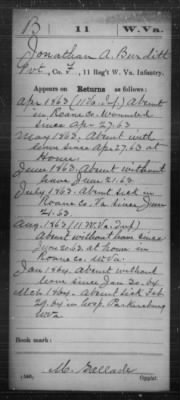 B 11 W.Va.
Jonathan A. Burditt
Pvt., Co. F, 11 Reg't W. Va. Infantry.
Appears on Returns as follows:
Apr 1863 (11 Va. Inf.) Absent
in Roane co. wounded
since Apr 27.63
May 1863. Absent with
leave since Apr 27.63 at
Home
June 1863. Absent without
leave June 21.63
July 1863. Absent sick in
Roane co. Va since June
21.63.
Aug. 1863 (11 W.Va. Inf)
Absent without leave since
June 20.63. at home in
Roane co. W.Va.
Jan 1864. Absent without
leave since Jan 20.64
Mch 1864. Absent sick Feb
29.64 in hosp. Parkersburg
W.Va.
Book mark:
M. Gallade
(546) Copyist.